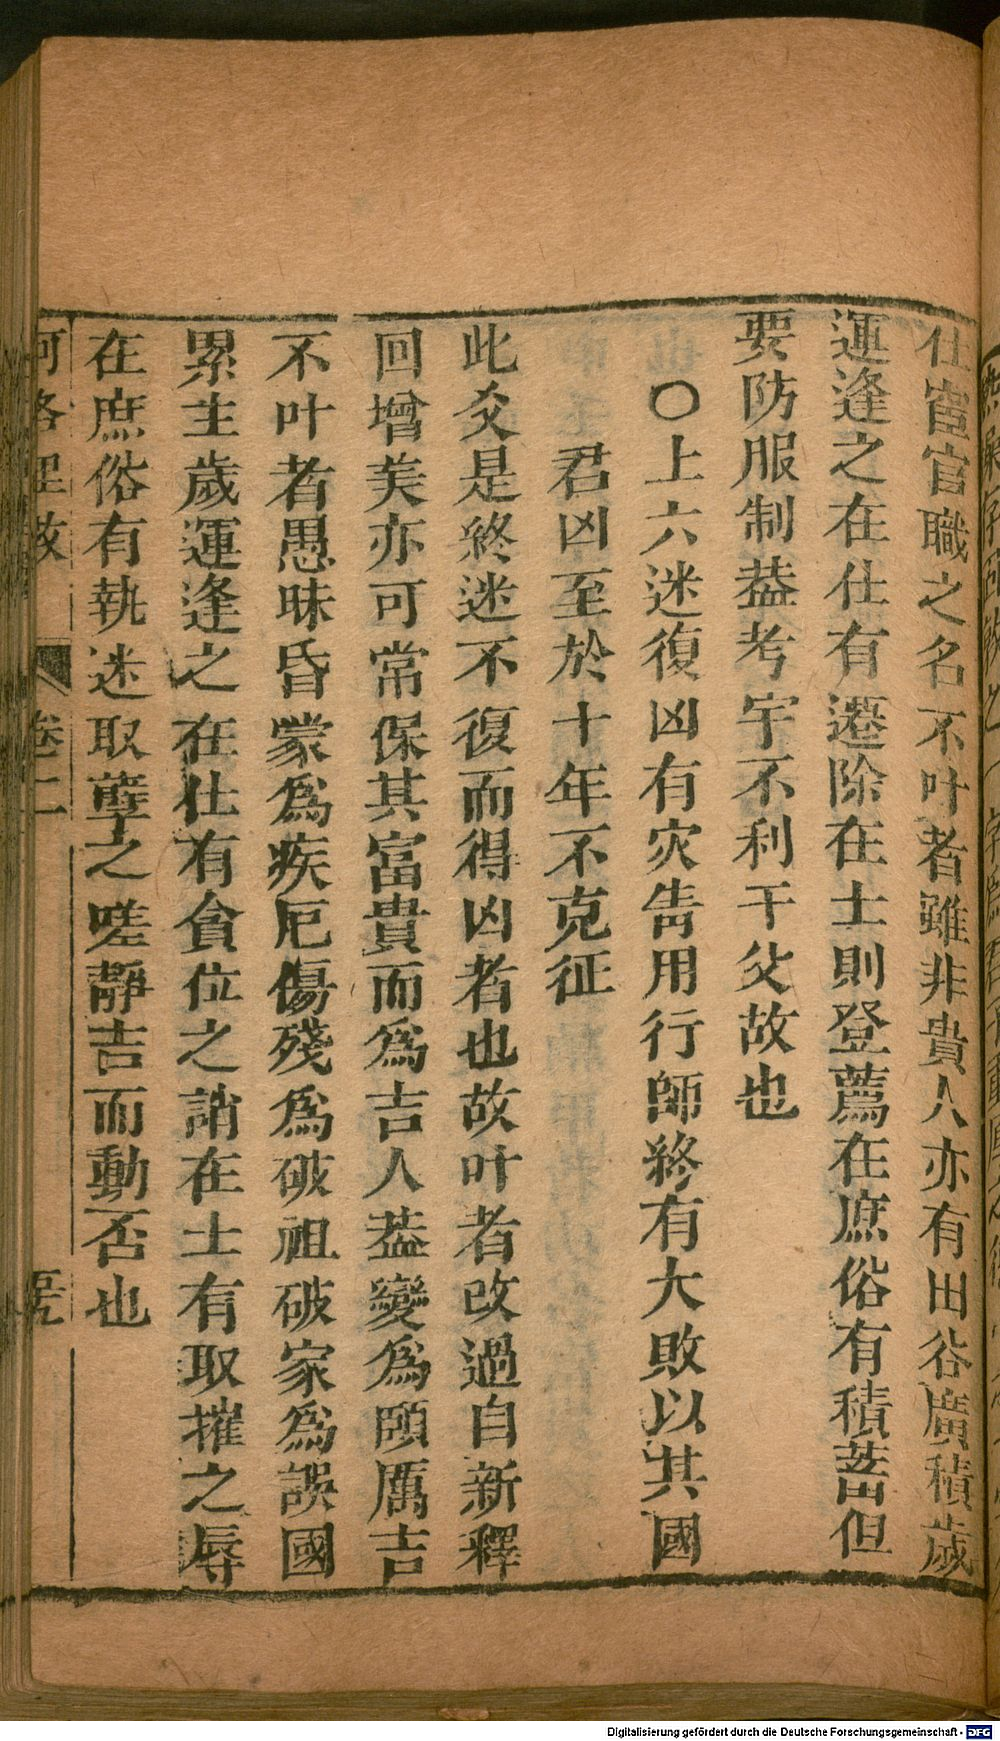 仕宦官職之名不叶者雖非貴人亦有田谷廣積歲
運逢之在仕有遷除在士則登薦在庶俗有積蓄但
要防服制葢考字不利干父故也
〇上六迷復凶有灾眚用行師終有大敗以其國
君凶至於十年不克征
此爻是終迷不復而得凶者也故叶者改過自新釋
回增美亦可常保其富貴而為吉人葢變為頤厲吉
不叶者愚昧昏蒙為疾厄傷殘為破祖破家為誤國
累主歲運逢之在仕有貪位之誚在士有取摧之辱
在庶俗有執迷取孽之嗟靜吉而動否也
河洛理数 卷二
Digitalisierung gefördert durch die Deutsche Forschungsgemeinschaft - DFG